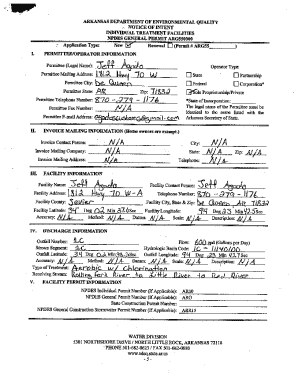 ARKANSAS DEPARTMENT OF ENVIRONMENTAL QUALITY
NOTICE OF INTENT
INDIVIDUAL TREATMENT FACILITIES
NPDES GENERAL PERMIT ARG550000
Application Type: New Renewal (Permit # ARG55
I. PERMITTEE/OPERATOR INFORMATION
Permittee (Legal Name): Jeff Agado Operator Type:
Permittee Mailing Address: 1812 Hwy 70 W State Partnership
Permittee City: De Queen Federal Corporation*
Permittee State: AR Zip: 71832 Sole Proprietorship/Private
Permittee Telephone Number: 870-279-1176 *State of Incorporation:
Permittee Fax Number: N/A The legal name of the Permittee must be
Permittee E-mail Address: @gmail.com Arkansas Secretary of State.
II. INVOICE MAILING INFORMATION (Home owners are exempt)
Invoice Contact Person: N/A City: N/A
Invoice Mailing Company: N/A State: N/A Zip: N/A
Invoice Mailing Address: N/A Telephone: N/A
III. FACILITY INFORMATION
Facility Name: Jeff Agado Facility Contact Person: Jeff Agado
Facility Address: Hwy 70 W-A Telephone Number: 870-279-1176
Facility County: Sevier Facility City, State & Zip: De Queen AR 71832
Facility Latitude: 34 Deg 02 Min Sec Facility Longitude: 94 Deg 23 Min Sec
Accuracy: N/A Method: N/A Datum: N/A Scale: N/A Description: N/A
IV. DISCHARGE INFORMATION
Outfall Number: Flow: 600 gal (Gallons per Day)
Stream Segment: 1C Hydrologic Basin Code:
Outfall Latitude: 34 Deg 02 Min Sec Outfall Longitude: 94 Deg 23 Min Sec
Accuracy: N/A Method: N/A Datum: N/A Scale: N/A Description: N/A
Type of Treatment: Aerobic w/ Chlorination
Receiving Stream: Rolling Fork River to Little River to Red River
V. FACILITY PERMIT INFORMATION
NPDES Individual Permit Number (If Applicable): AR00
NPDES General Permit Number (If Applicable): ARG
State Construction Permit Number:
NPDES General Construction Stormwater Permit Number (If Applicable): ARR15
WATER DIVISION
5301 NORTHSHORE DRIVE / NORTH LITTLE ROCK, ARKANSAS 72118
PHONE 501-682-0623 / FAX 501-682-0880
www.adeq.state.ar.us
- 5 -